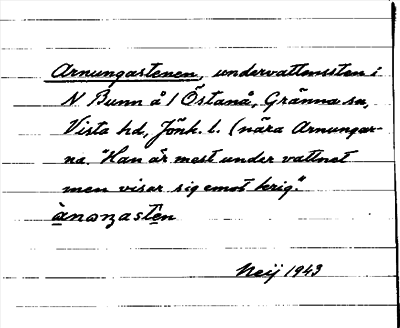 Arnungastenen, undervattenssten i
N Bunn å / Östanå, Gränna sn,
Vista hd, Jönk. l. (nära Arnungar-
na. "Han är mest under vattnet
men visar sig emot krig."
Meij 1943